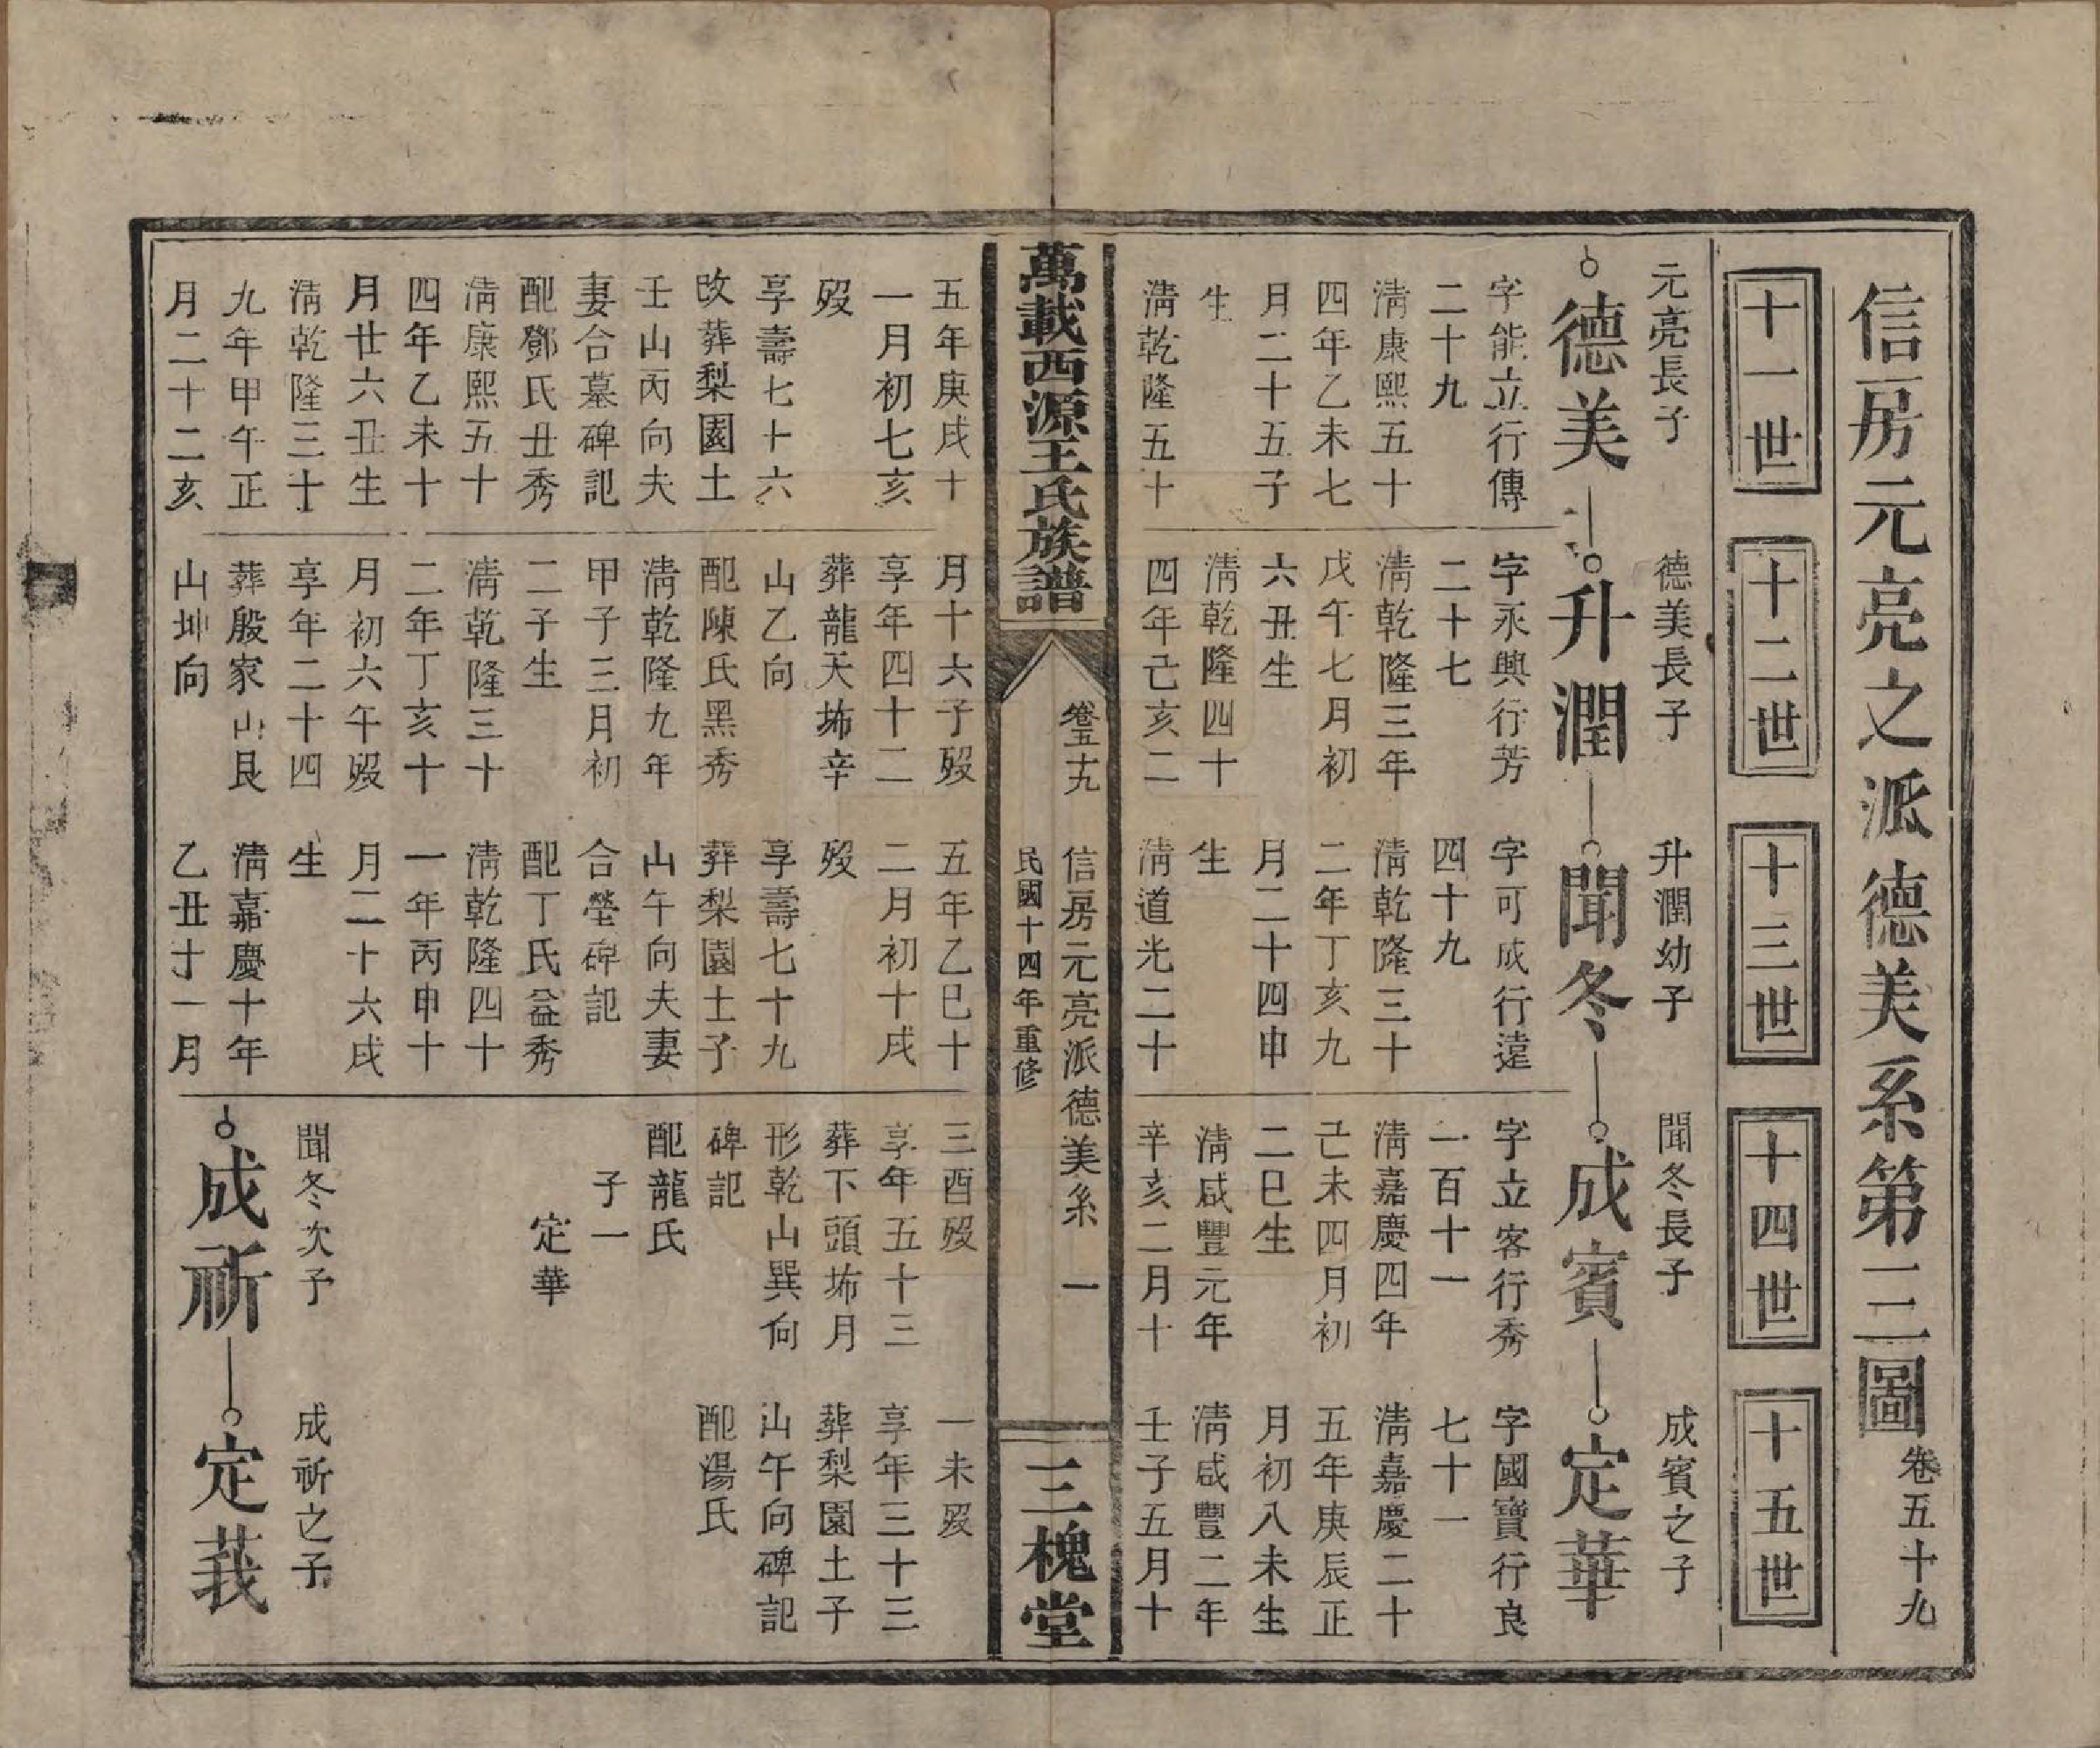 信房元亮之派德美系第三圖 卷五十九
十一世
十二世
十三世
十四世
十五世
元亮長子
德美
字能立行傳
二十九
清康熙五十
四年乙未七
月二十五子
生
清乾隆五十
德美長子
升潤
字永興行芳
二十七
清乾隆三年
戊午七月初
六丑生
清乾隆四十
四年己亥二
升潤幼子
聞冬
字可成行達
四十九
清乾隆三十
二年丁亥九
月二十四申
生
清道光二十
聞冬長子
成賓
字立客行秀
一百十一
清嘉慶四年
己未四月初
二巳生
清咸豐元年
辛亥二月十
成賓之子
定華
字國寶行良
七十一
清嘉慶二十
五年庚辰正
月初八未生
清咸豐二年
壬子五月十
萬載西源王氏族譜
卷五十九
信房元亮派德美系 一
民國十四年重修
三槐堂
五年庚戌十
一月初七亥
歿
享壽七十六
改葬梨園土
壬山丙向夫
妻合墓碑記
配鄧氏丑秀
清康熙五十
四年乙未十
月廿六丑生
清乾隆三十
九年甲午正
月二十二亥
月十六子歿
享年四十二
葬龍天垇辛
山乙向
配陳氏黑秀
清乾隆九年
甲子三月初
二子生
清乾隆三十
二年丁亥十
月初六午歿
享年二十四
葬殷家山艮
山坤向
五年乙巳十
二月初十戌
歿
享壽七十九
葬梨園土子
山午向夫妻
合塋碑記
配丁氏益秀
清乾隆四十
一年丙申十
月二十六戌
生
清嘉慶十年
乙丑十一月
三酉歿
享年五十三
葬下頭垇月
形乾山巽向
碑記
配龍氏
子一
定華
一未歿
享年三十三
葬梨園土子
山午向碑記
配湯氏
聞冬次子
成祈
成祈之子
定莪